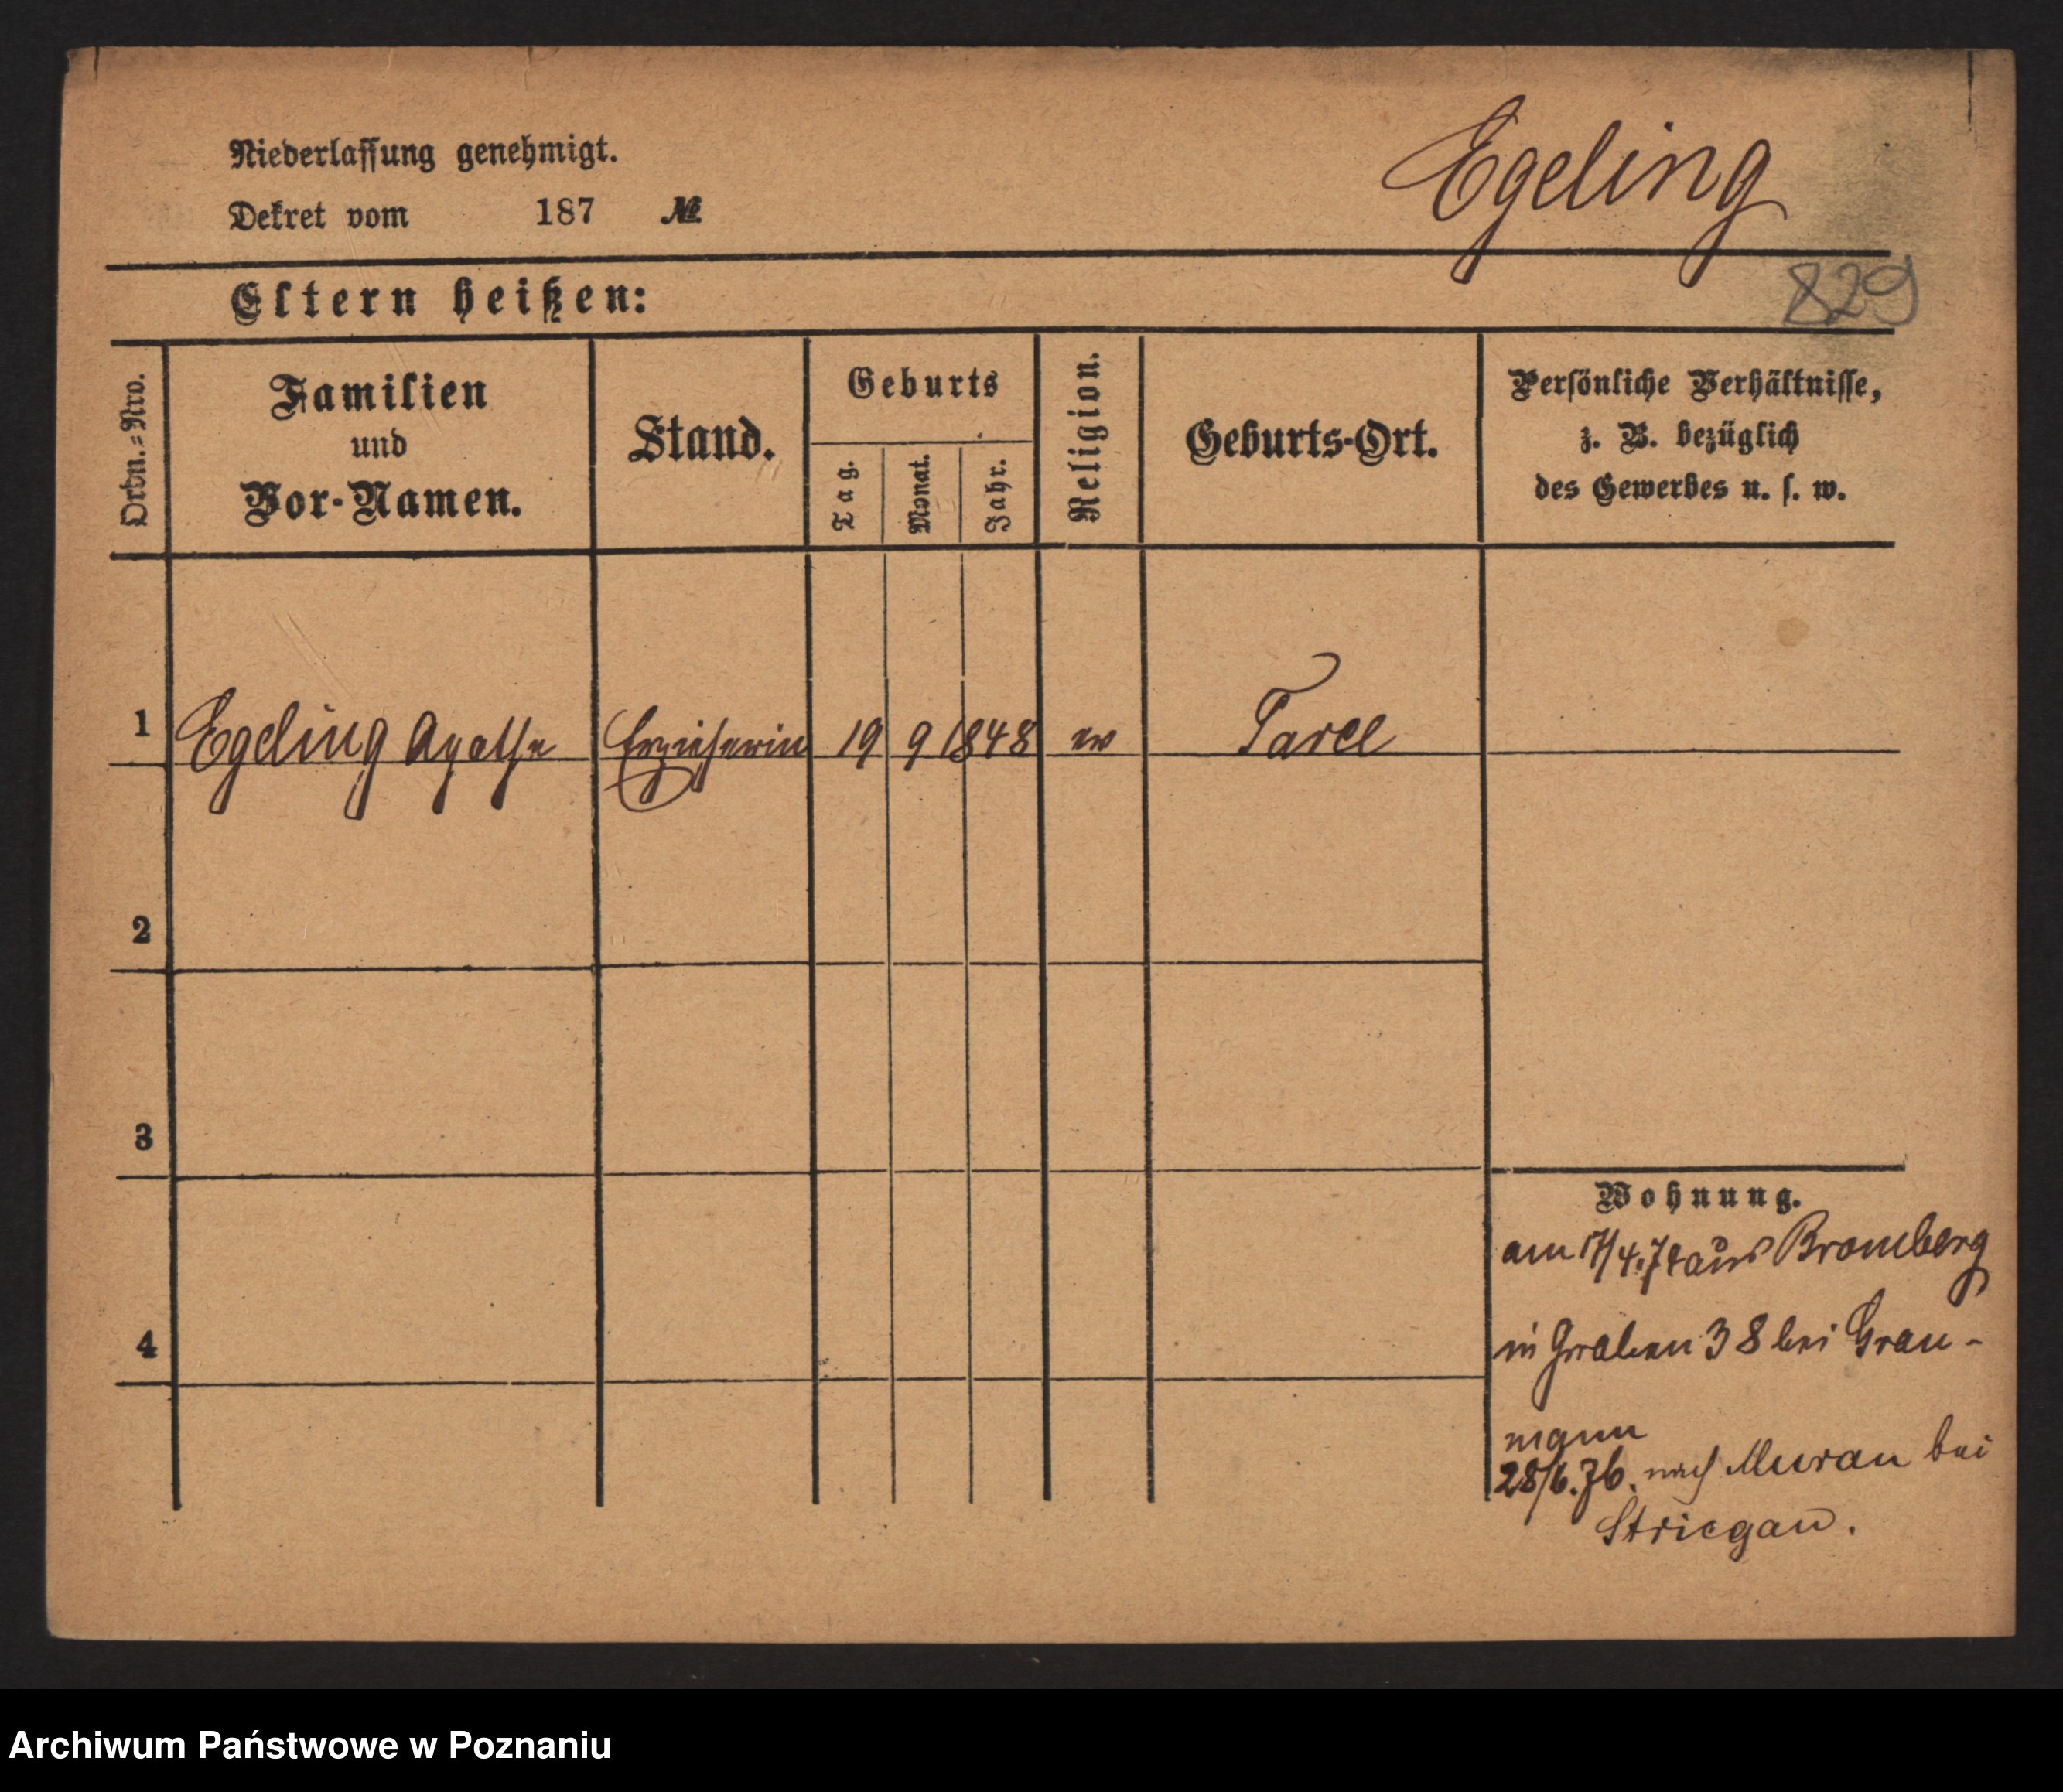 Niederlassung genehmigt.
Egeling
Dekret vom 187 №
829
Eltern heißen:
Ordn.=Nro.
Familien
und
Vor-Namen.
Stand.
Geburts
Tag.
Monat.
Jahr.
Religion.
Geburts-Ort.
Persönliche Verhältnisse,
z. B. bezüglich
des Gewerbes u. s. w.
1 Egeling Agathe Erzieherin 19 9 1848 ev
2
3
Wohnung.
am 17/4.74 aus Bromberg
in Graben 38 bei Grau-
4
mann
28/6.76. nach Murau bei
Striegau.
Archiwum Państwowe w Poznaniu